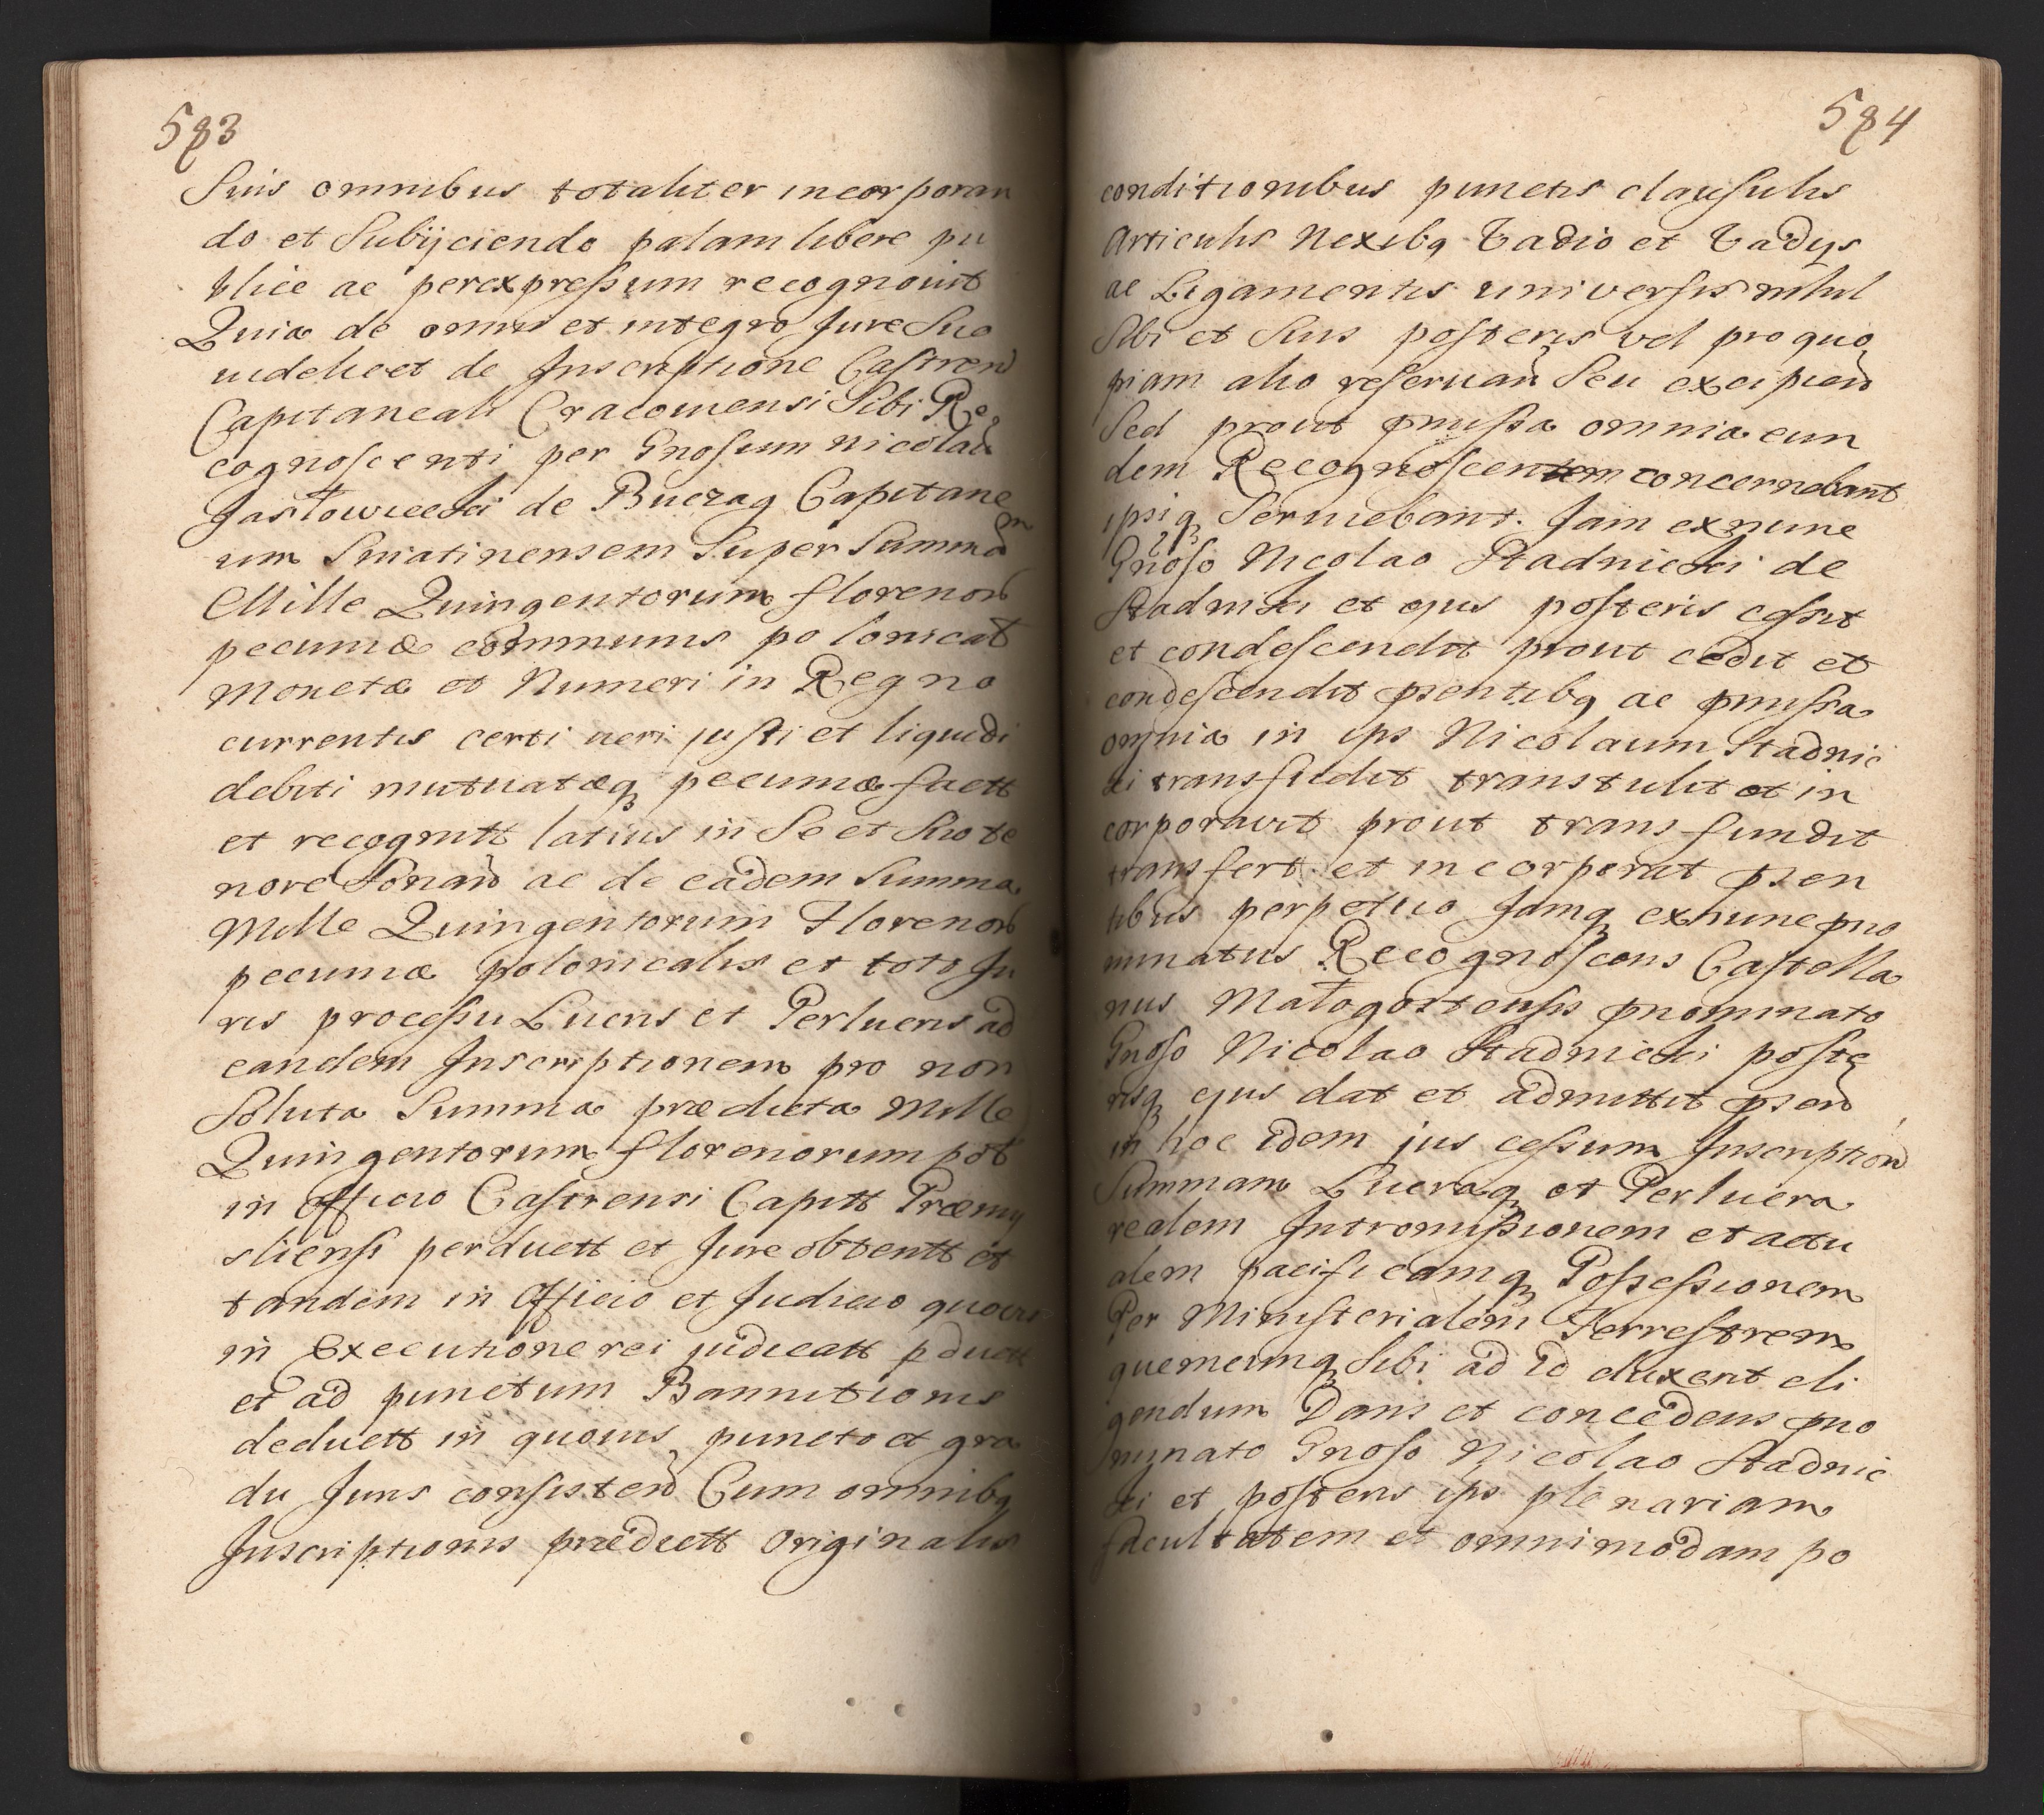 583
Suis omnibus totaliter incorporan
do et Subijciendo palam libere pu
blice ac perexpressum recognouit
Quia de omni et integro Jure Suo
uidelicet de Inscriptione Castren
Capitaneali Cracouiensi Sibi Re
cognoscenti per Gnosum Nicolau
Jasłowiecki de Buczag Capitane
um Sniatinensem Super Summam
Mille Quingentorum florenor
pecuniæ communis polonicat
Monetæ et Numeri in Regno
currentis certi ueri justi et liquidi
debiti mutuatæq pecuniæ factt
et recognitt latius in Se et Suo te
nore Sonan ac de eadem Summa
Mille Quingentorum Florenor
pecuniæ polonicalis et toto Ju
ris processu Lucris et Perlucris ad
eandem Inscriptionem pro non
Soluta Summa prædicta Mille
Quingentorum florenorum pol
in Officio Castrensi Capitt Præmy
sliensi perductt et Jure obtentt et
tandem in Officio et Judicio quovis
in Executione rei judicatt pductt
et ad punctum Bannitionis
deductt in quouis puncto et gra
du Juris consisten Cum omnibq
Inscriptionis prædictt Originalis
584
conditionibus punctis clausulis
Articulis Nexibq Vadio et Vadys
ac Ligamentis universis nihil
Sibi et Suis posteris vel pro quo
piam alio reseruan Seu excipien
Sed prout pmissa omnia eun
dem Recognoscentem concernebant
ipsiq Seruiebant. Jam exnunc
Gnoso Nicolao Stadnicki de
Stadniki et ejus posteris cessit
et condescendit prout cedit et
condescendit psentibq ac pmissa
omnia in ips Nicolaum Stadnic
ki transfudit transtulit et in
corporavit prout transfundit
transfert et incorporat psen
tibus perpetuo Jamq exnunc pno
minatus Recognoscens Castella
nus Małogostensis pnominato
Gnoso Nicolao Stadnicki poste
risq ejus dat et admittit psen
in hoc idem jus cessum Inscription
Summam Lucraq et Perlucra
realem Intromissionem et actu
alem pacificamq Possessionem
Per Ministerialem Terrestrem
quemcunq Sibi ad id duxerit eli
gendum Dans et concedens pno
minato Gnoso Nicolao Stadnic
ki et posteris ips plenariam
facultatem et omnimodam po